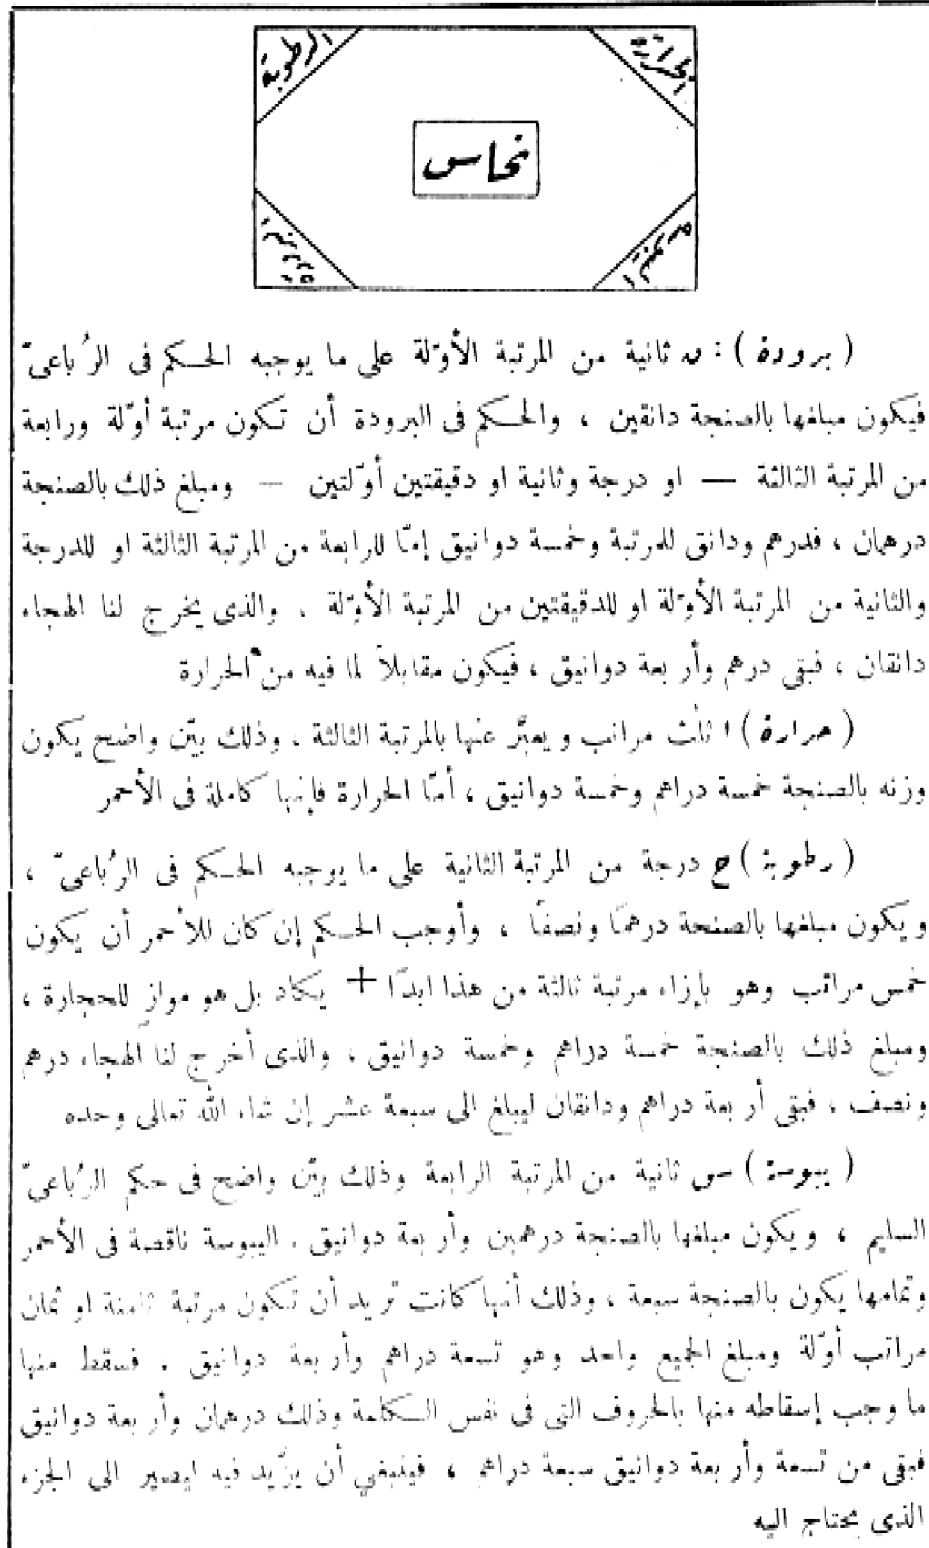 الرطوبة
الحرارة
نحاس
( برودة ) : ن ثانية من المرتبة الأوّلة على ما يوجبه الحكم فى الرُباعىّ
فيكون مبلغها بالصنجة دانقين ، والحكم فى البرودة أن تكون مرتبة أوّلة ورابعة
من المرتبة الثالثة — او درجة وثانية او دقيقتين أوّلتين — ومبلغ ذلك بالصنجة
درهمان ، فدرهم ودانق للمرتبة وخمسة دوانيق إمّا للرابعة من المرتبة الثالثة او للدرجة
والثانية من المرتبة الأوّلة او للدقيقتين من المرتبة الأوّلة . والذى يخرج لنا الهجاء
دانقان ، فبقى درهم وأربعة دوانيق ، فيكون مقابلاً لما فيه من الحرارة
( حرارة ) ا ثلث مراتب ويعبَّر عنها بالمرتبة الثالثة ، وذلك بيّن واضح يكون
وزنه بالصنجة خمسة دراهم وخمسة دوانيق ، أمّا الحرارة فإنها كاملة فى الأحمر
( رطوبة ) ح درجة من المرتبة الثانية على ما يوجبه الحكم فى الرُباعىّ ،
ويكون مبلغها بالصنجة درهمًا ونصفًا ، وأوجب الحكم إن كان للأحمر أن يكون
خمس مراتب وهو بإزاء مرتبة ثالثة من هذا ابدًا + يكاد بل هو موازٍ للحجارة ،
ومبلغ ذلك بالصنجة خمسة دراهم وخمسة دوانيق ، والذى أخرج لنا الهجاء درهم
ونصف ، فبقى أربعة دراهم ودانقان ليبلغ الى سبعة عشر إن شاء الله تعالى وحده
( يبوسة ) س ثانية من المرتبة الرابعة وذلك بيّن واضح فى حكم الرُباعىّ
السليم ، ويكون مبلغها بالصنجة درهمين وأربعة دوانيق . اليبوسة ناقصة فى الأحمر
وتمامها يكون بالصنجة سبعة ، وذلك أنها كانت تريد أن تكون مرتبة ثامنة او ثمان
مراتب أوّلة ومبلغ الجميع واحد وهو تسعة دراهم وأربعة دوانيق . فسقط منها
ما وجب إسقاطه منها بالحروف التى فى نفس الكلمة وذلك درهمان وأربعة دوانيق
فبقى من تسعة وأربعة دوانيق سبعة دراهم ، فينبغى أن يزّيد فيه ليصير الى الجزء
الذى يحتاج اليه